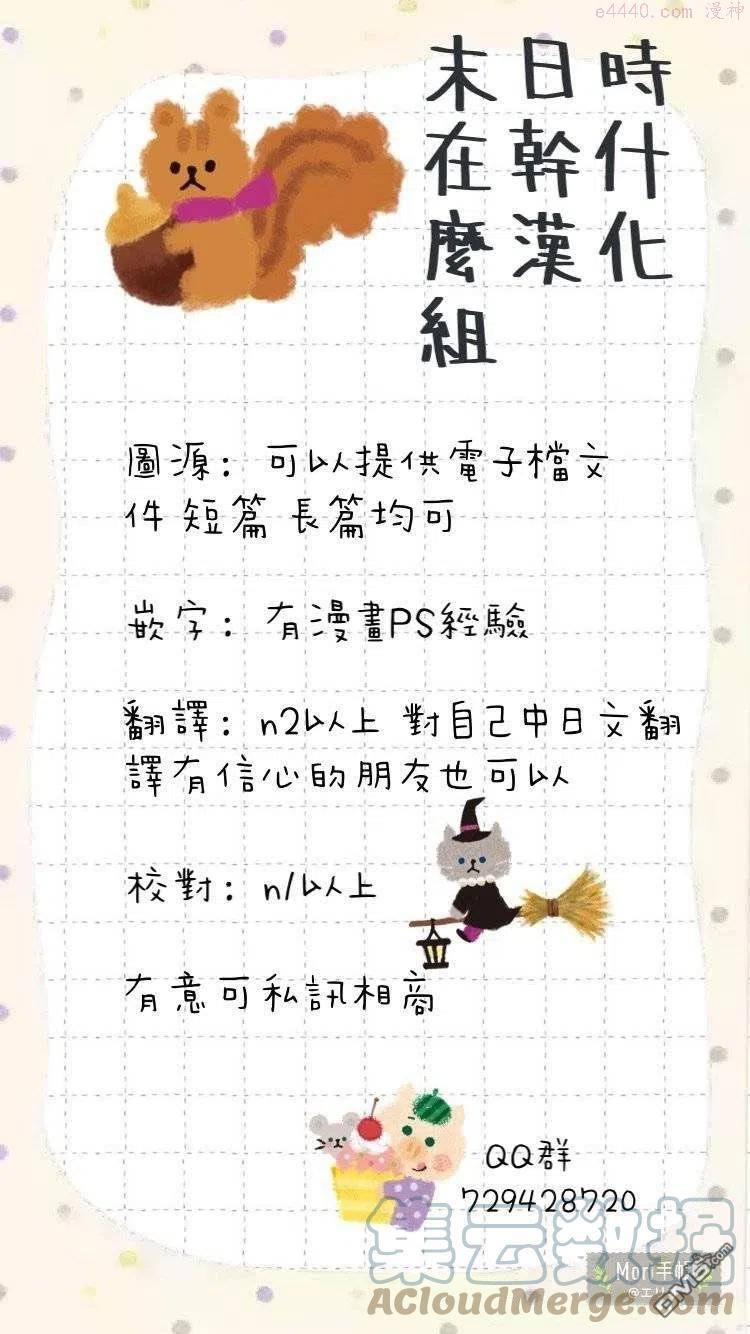 e4440.com 漫神
末日時
在幹什
麼漢化
組
圖源：可以提供電子檔文
件 短篇 長篇均可
嵌字：有漫畫PS經驗
翻譯：n2以上 對自己中日文翻
譯有信心的朋友也可以
校對：n1以上
有意可私訊相商
QQ群
729428720
集云数据
Mori手帳
@エリ
DM5.com
ACloudMerge.com